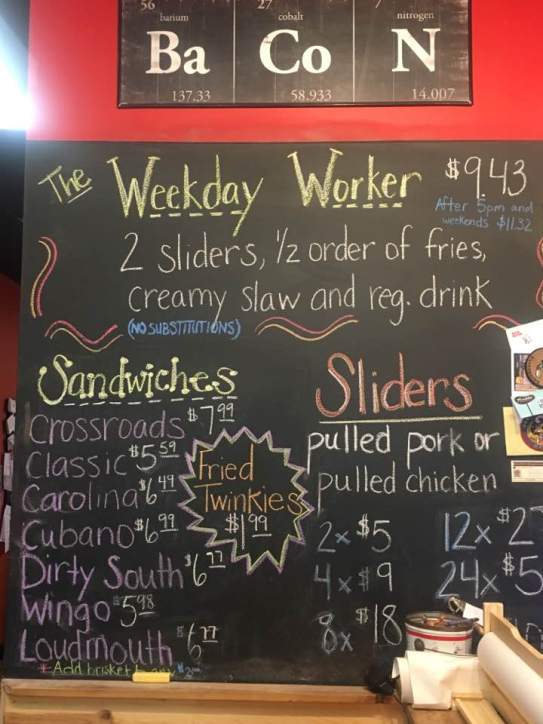 56 27 7
barium cobalt nitrogen
Ba Co N
137.33 58.933 14.007
The Weekday Worker $9.43
After 5pm and
weekends $11.32
2 sliders, 1/2 order of fries,
creamy slaw and reg. drink
(NO SUBSTITUTIONS)
Sandwiches
Crossroads $7.99
Classic $5.59
Carolina $6.49
Cubano $6.99
Dirty South $6.77
Wingo $5.98
Loudmouth $6.77
*Add brisket to any
Fried
Twinkies
$1.99
Sliders
pulled pork or
pulled chicken
2x $5
4x $9
8x $18
12x $2
24x $5